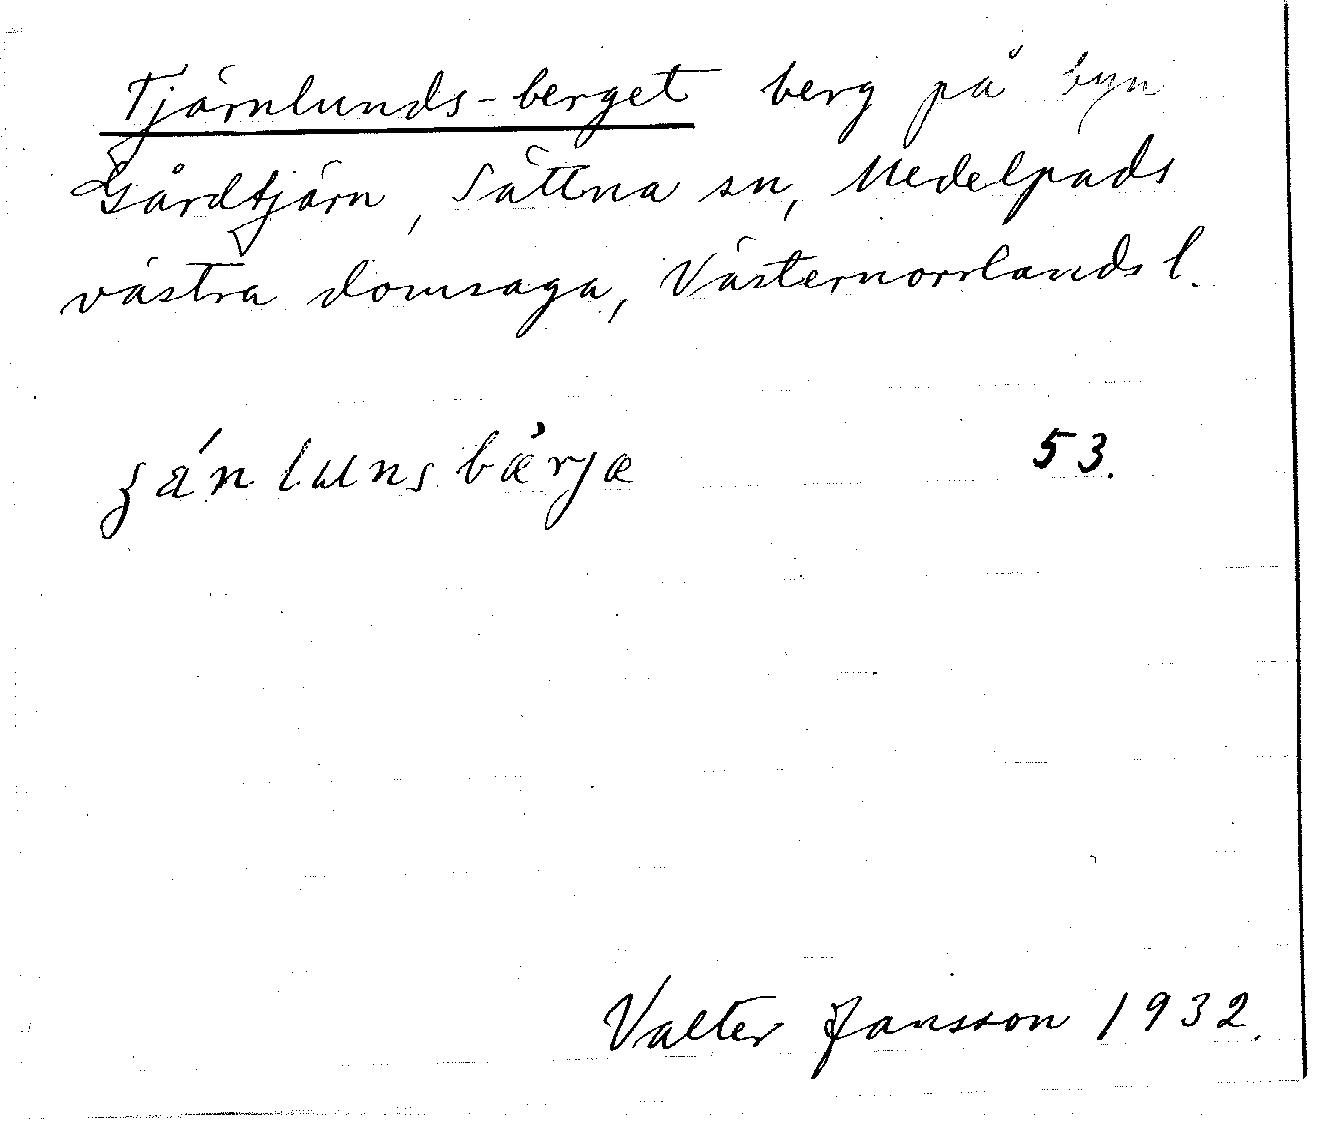 Tjärnlunds-berget berg på byn
Gårdtjärn, Sättna sn, Medelpads
västra domsaga, Västernorrlands l.
53.
Valter Jansson 1932.